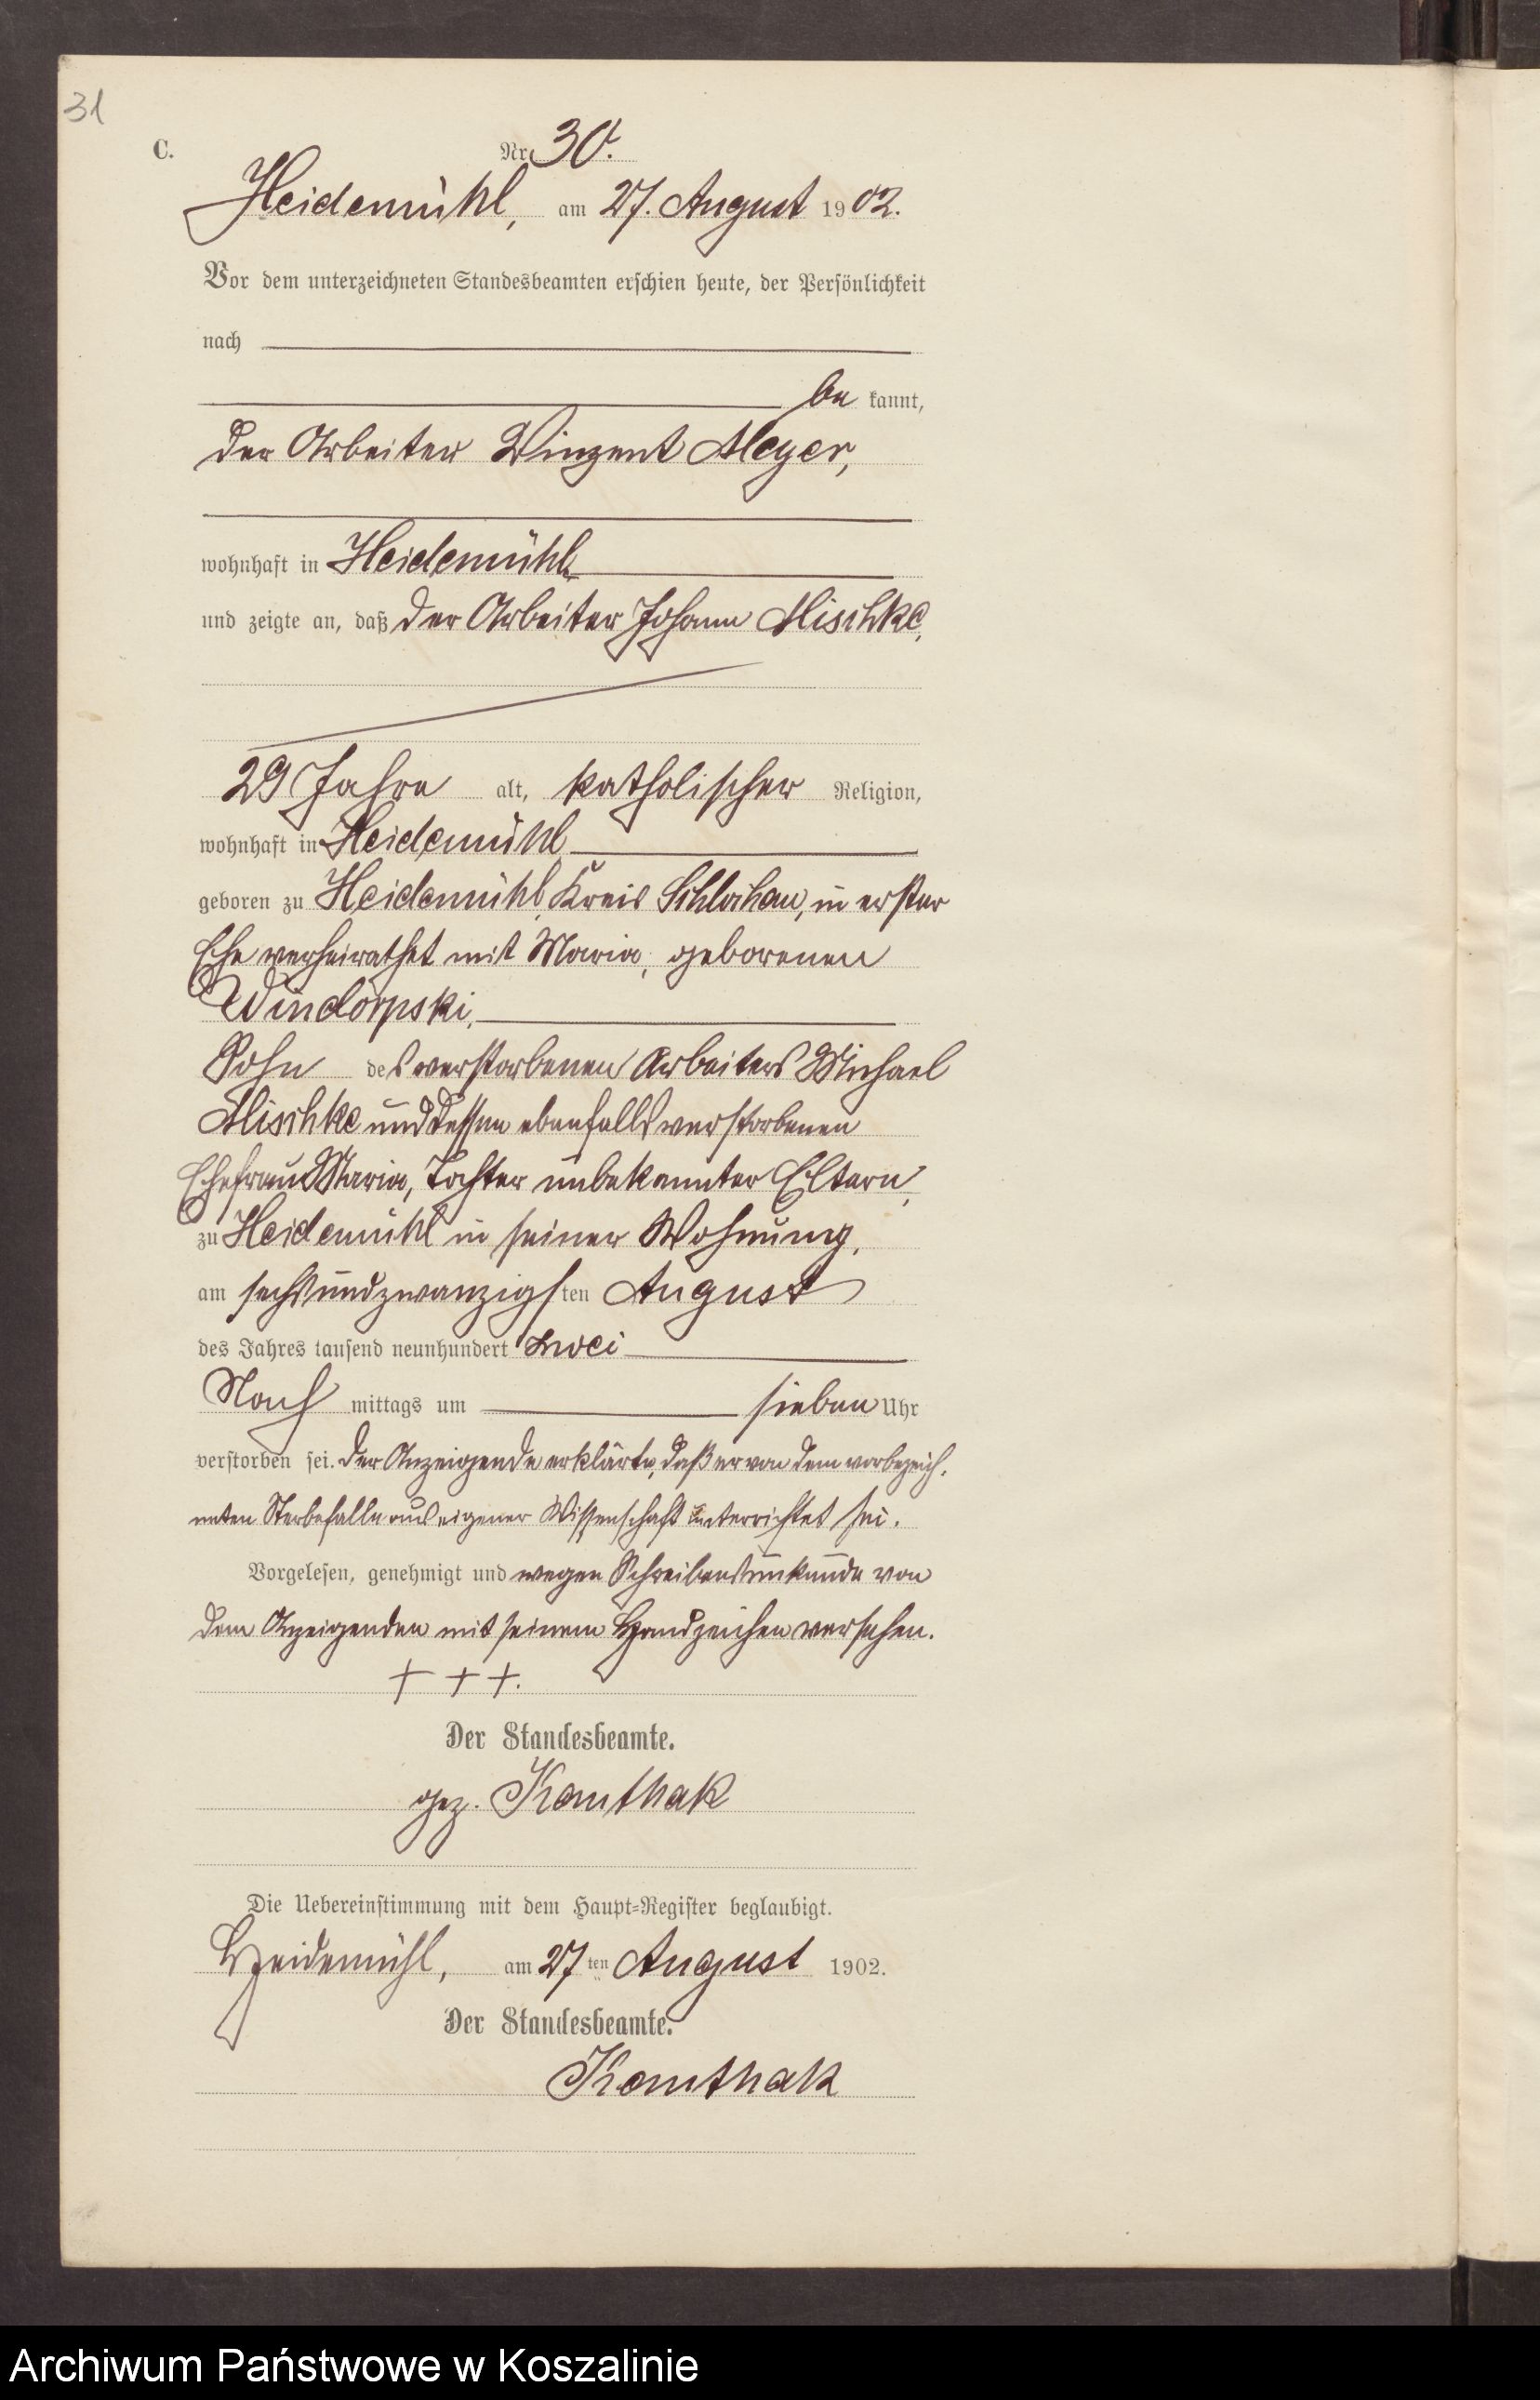 31
C.
Nr. 30.
Heidemühl, am 27. August 1902.
Vor dem unterzeichneten Standesbeamten erschien heute, der Persönlichkeit
nach
be kannt,
der Arbeiter Vinzent Meyer,
wohnhaft in Heidemühl
und zeigte an, daß der Arbeiter Johann Mischke,
29 Jahre alt, katholischer Religion,
wohnhaft in Heidemühl
geboren zu Heidemühl, Kreis Schlochau, in erster
Ehe verheirathet mit Maria, geborenen
Windorpski,
Sohn des verstorbenen Arbeiters Michael
Mischke und dessen ebenfalls verstorbenen
Ehefrau Maria, Tochter unbekannter Eltern,
zu Heidemühl in seiner Wohnung,
am sechsundzwanzigsten August
des Jahres tausend neunhundert zwei
Nachmittags um sieben Uhr
verstorben sei. Der Anzeigende erklärte, daß er von dem vorbezeich-
neten Sterbefalle aus eigener Wissenschaft unterrichtet sei.
Vorgelesen, genehmigt und wegen Schreibensunkunde von
dem Anzeigenden mit seinem Handzeichen versehen.
+ + +.
Der Standesbeamte.
gez. Kamthak
Die Uebereinstimmung mit dem Haupt-Register beglaubigt.
Heidemühl, am 27ten August 1902.
Der Standesbeamte.
Kamthak
Archiwum Państwowe w Koszalinie